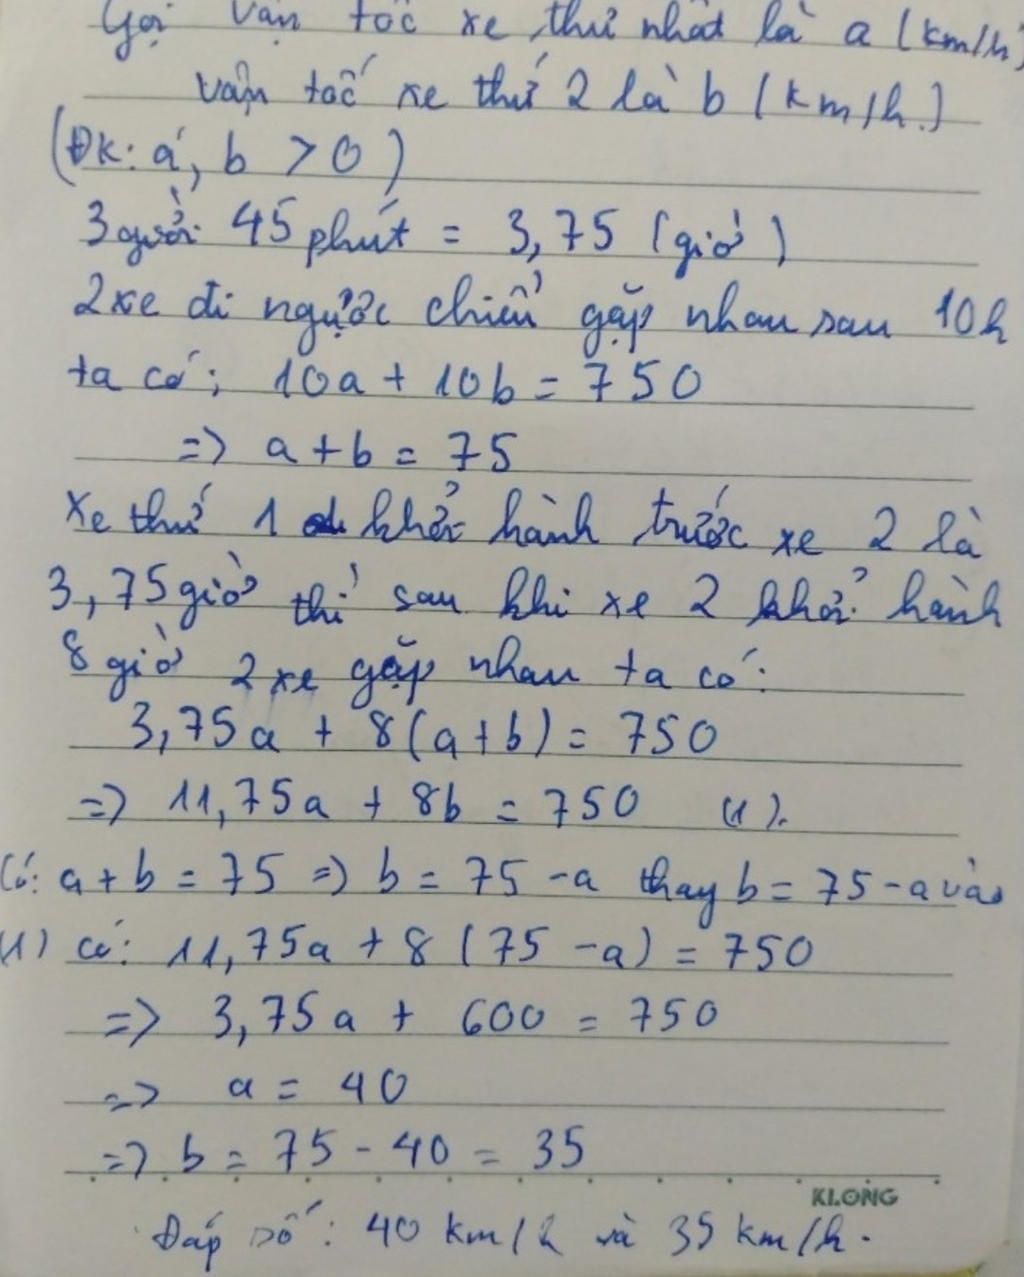 Gọi vận tốc xe thứ nhất là a (km/h)
vận tốc xe thứ 2 là b (km/h.)
(ĐK: a, b > 0)
3 giờ 45 phút = 3,75 (giờ)
2 xe đi ngược chiều gặp nhau sau 10h
ta có; 10a + 10b = 750
=> a + b = 75
Xe thứ 1 khởi hành trước xe 2 là
3,75 giờ thì sau khi xe 2 khởi hành
8 giờ 2 xe gặp nhau ta có:
3,75a + 8(a+b) = 750
=> 11,75a + 8b = 750 (1).
Có: a + b = 75 => b = 75 - a thay b = 75 - a vào
(1) có: 11,75a + 8 (75 - a) = 750
=> 3,75a + 600 = 750
=> a = 40
=> b = 75 - 40 = 35
KLONG
Đáp số: 40 km/h và 35 km/h.